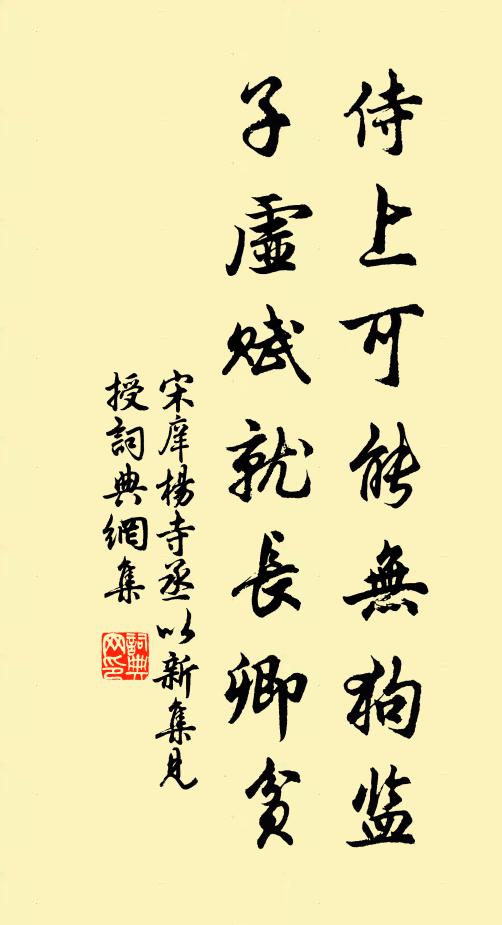 侍上可能無狗监
子虛赋就長卿貧
宋庠楊寺丞以新集見
授詞典網集
詞典网印